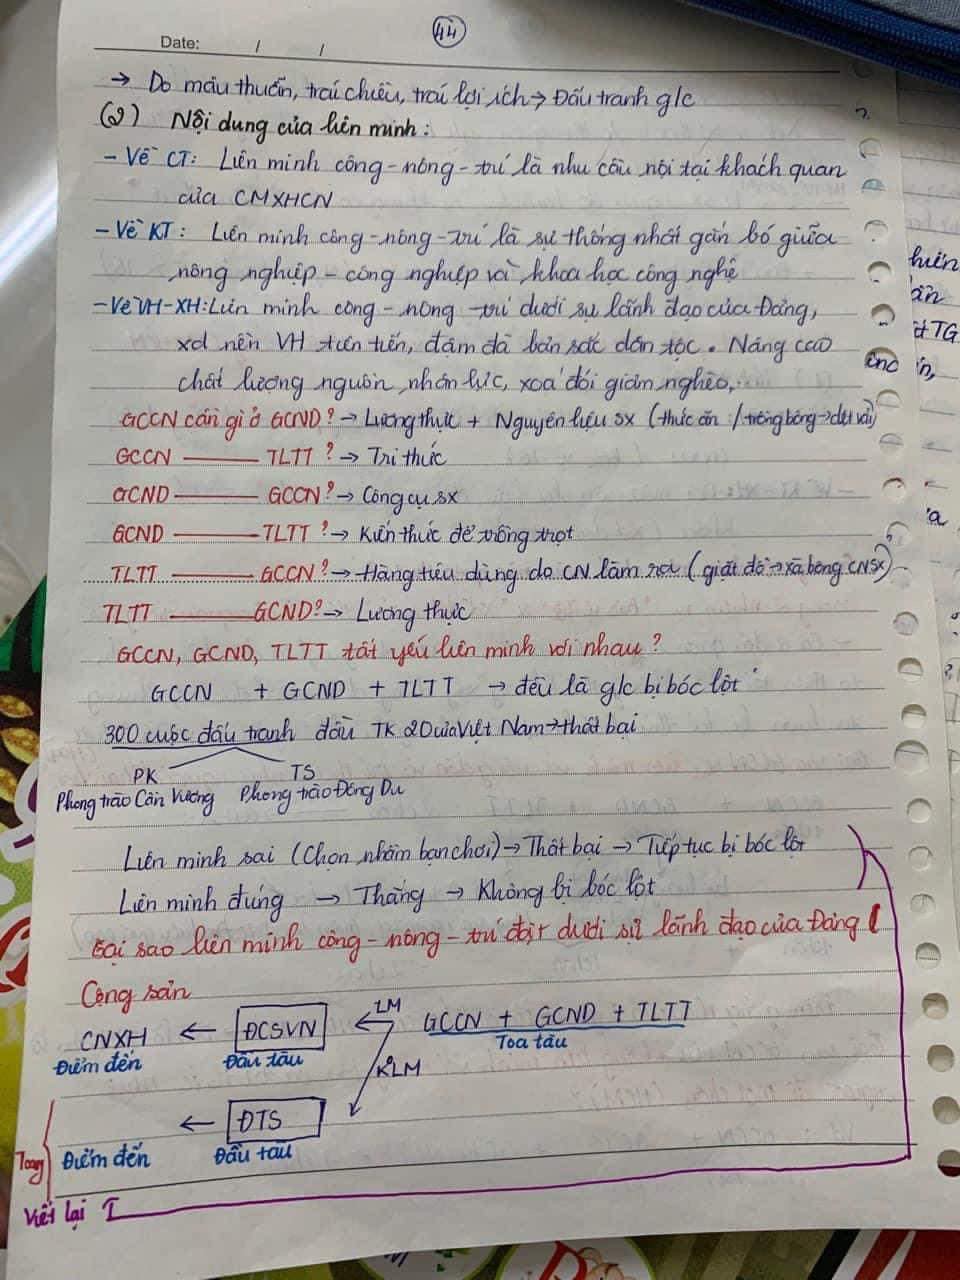 44
Date: / /
→ Do mâu thuẫn, trái chiều, trái lợi ích → Đấu tranh glc
(2) Nội dung của liên minh:
- Về CT: Liên minh công - nông - trí là nhu cầu nội tại khách quan
của CMXHCN
- Về KT: Liên minh công - nông - trí là sự thống nhất gắn bó giữa
nông nghiệp - công nghiệp và khoa học công nghệ
- Về VH-XH: Liên minh công - nông - trí dưới sự lãnh đạo của Đảng,
xd nền VH tiên tiến, đậm đà bản sắc dân tộc. Nâng cao
chất lượng nguồn nhân lực, xoá đói giảm nghèo,
GCCN cần gì ở GCND? → Lương thực + Nguyên liệu sx (thức ăn / trồng bông → dệt vải)
GCCN — TLTT? → Tri thức
GCND — GCCN? → Công cụ sx
GCND — TLTT? → Kiến thức để trồng trọt
TLTT — GCCN? → Hàng tiêu dùng do CN làm ra (giặt đồ → xà bông CNSX)
TLTT — GCND? → Lương thực
GCCN, GCND, TLTT tất yếu liên minh với nhau?
GCCN + GCND + TLTT → đều là glc bị bóc lột
300 cuộc đấu tranh đầu TK 20 của Việt Nam → thất bại
PK TS
Phong trào Cần Vương Phong trào Đông Du
Liên minh sai (Chọn nhầm bạn chơi) → Thất bại → Tiếp tục bị bóc lột
Liên minh đúng → Thắng → Không bị bóc lột
Tại sao liên minh công - nông - trí đặt dưới sự lãnh đạo của Đảng
Cộng sản
CNXH ← ĐCSVN ← LM GCCN + GCND + TLTT
Điểm đến Đầu tàu Toa tàu
KLM
← ĐTS
Điểm đến Đầu tàu
Viết lại I